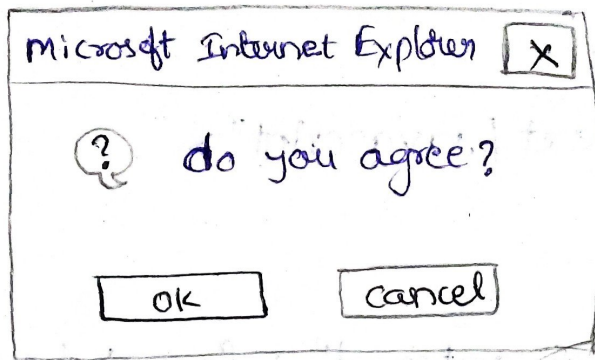 Microsoft Internet Explorer X
? do you agree?
OK cancel